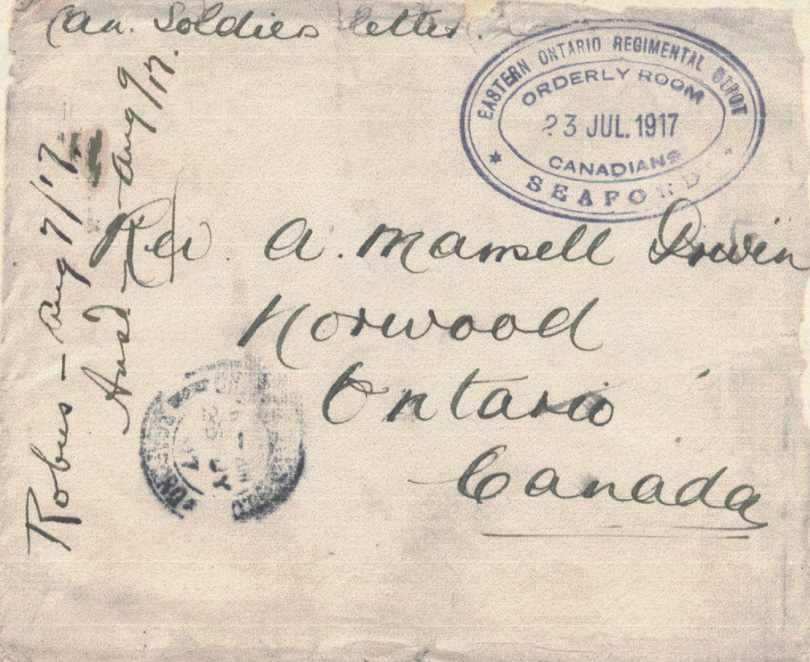 Can. Soldiers letter.
EASTERN ONTARIO REGIMENTAL DEPOT
ORDERLY ROOM
23 JUL. 1917
CANADIANS
SEAFORD
Rev A. Mansell Irwin
Norwood
Ontario
Canada
Robus - Aug 7/17.
Ansd - Aug 9/17.